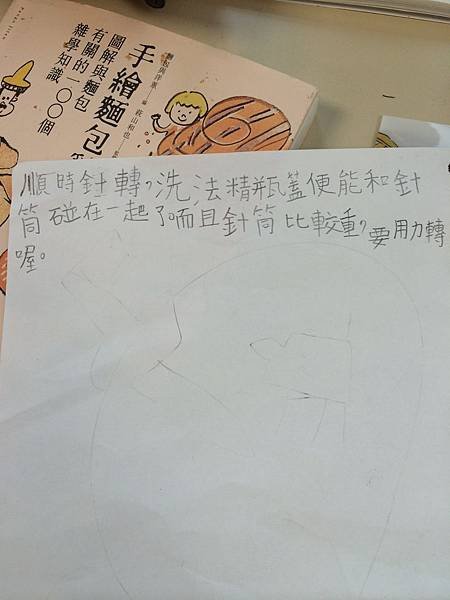 手繪麵包
圖解與麵包
有關的一〇〇個
雜學知識
順時針轉,洗法精瓶蓋便能和針
筒碰在一起了。而且針筒比較重,要用力轉
喔。